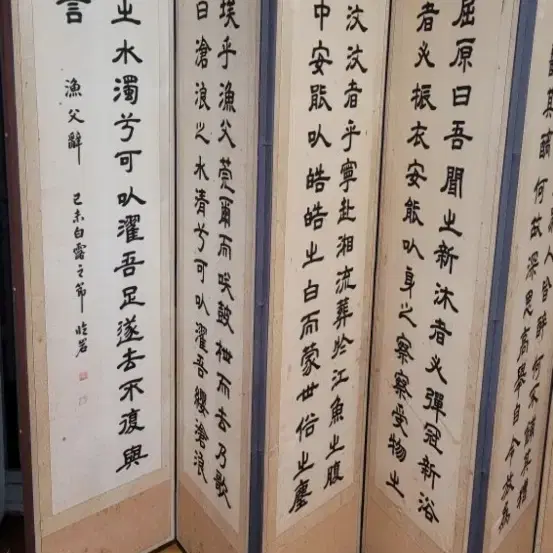 人皆醉何不餔其糟
醨何故深思高舉自令放爲
屈原曰吾聞之新沐者必彈冠新浴
者必振衣安能以身之察察受物之
汶汶者乎寧赴湘流葬於江魚之腹
中安能以皓皓之白而蒙世俗之塵
埃乎漁父莞爾而咲鼓枻而去乃歌
曰滄浪之水清兮可以濯吾纓滄浪
之水濁兮可以濯吾足遂去不復與
言
漁父辭 己未白露之節